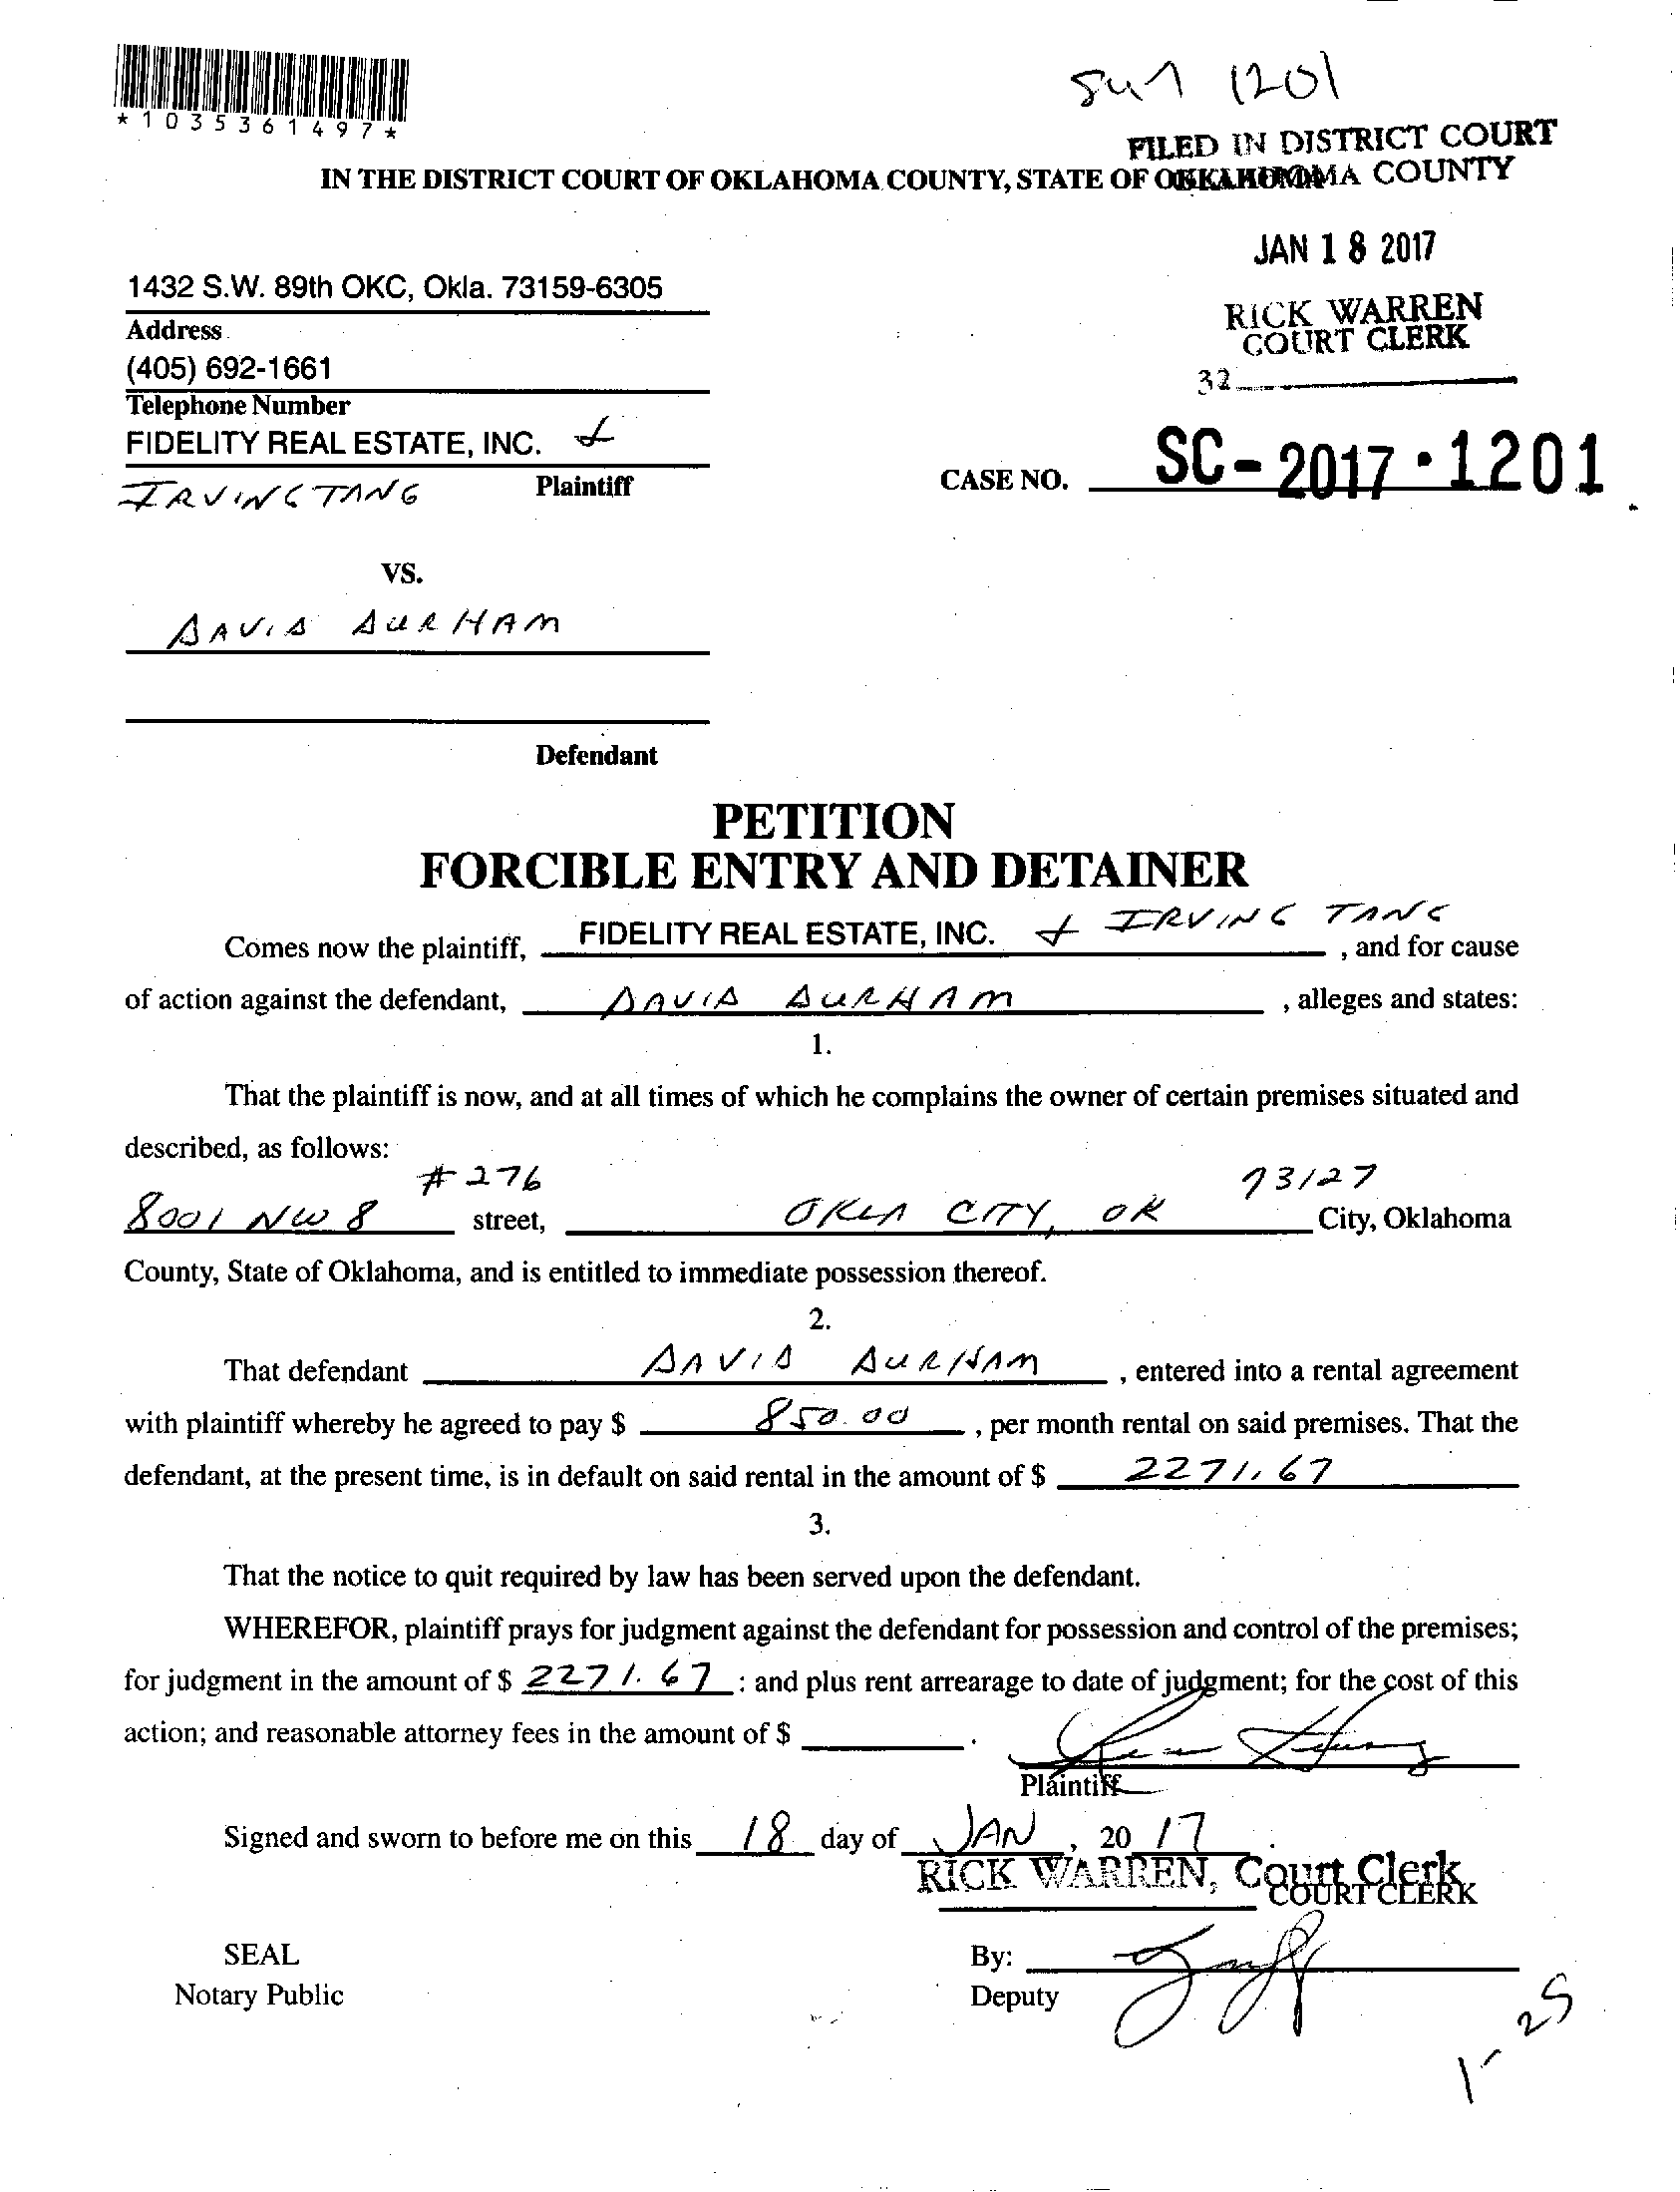 *1035361497*
1201
FILED IN DISTRICT COURT
IN THE DISTRICT COURT OF OKLAHOMA COUNTY, STATE OF OKLAHOMA
OKLAHOMA COUNTY
JAN 18 2017
1432 S.W. 89th OKC, Okla. 73159-6305
Address
RICK WARREN
COURT CLERK
(405) 692-1661
32
Telephone Number
FIDELITY REAL ESTATE, INC. &
IRVING TANG Plaintiff
CASE NO. SC-2017-1201
VS.
DAVID DURHAM
Defendant
PETITION
FORCIBLE ENTRY AND DETAINER
Comes now the plaintiff, FIDELITY REAL ESTATE, INC. & IRVING TANG, and for cause
of action against the defendant, DAVID DURHAM, alleges and states:
1.
That the plaintiff is now, and at all times of which he complains the owner of certain premises situated and
described, as follows:
#276 73127
8001 NW 8 street, OKLA CITY, OK City, Oklahoma
County, State of Oklahoma, and is entitled to immediate possession thereof.
2.
That defendant DAVID DURHAM, entered into a rental agreement
with plaintiff whereby he agreed to pay $ 850.00, per month rental on said premises. That the
defendant, at the present time, is in default on said rental in the amount of $ 2271.67
3.
That the notice to quit required by law has been served upon the defendant.
WHEREFOR, plaintiff prays for judgment against the defendant for possession and control of the premises;
for judgment in the amount of $ 2271.67 : and plus rent arrearage to date of judgment; for the cost of this
action; and reasonable attorney fees in the amount of $ .
Plaintiff
Signed and sworn to before me on this 18 day of JAN, 2017
RICK WARREN, Court Clerk
COURT CLERK
SEAL
By:
Notary Public
Deputy
1-25